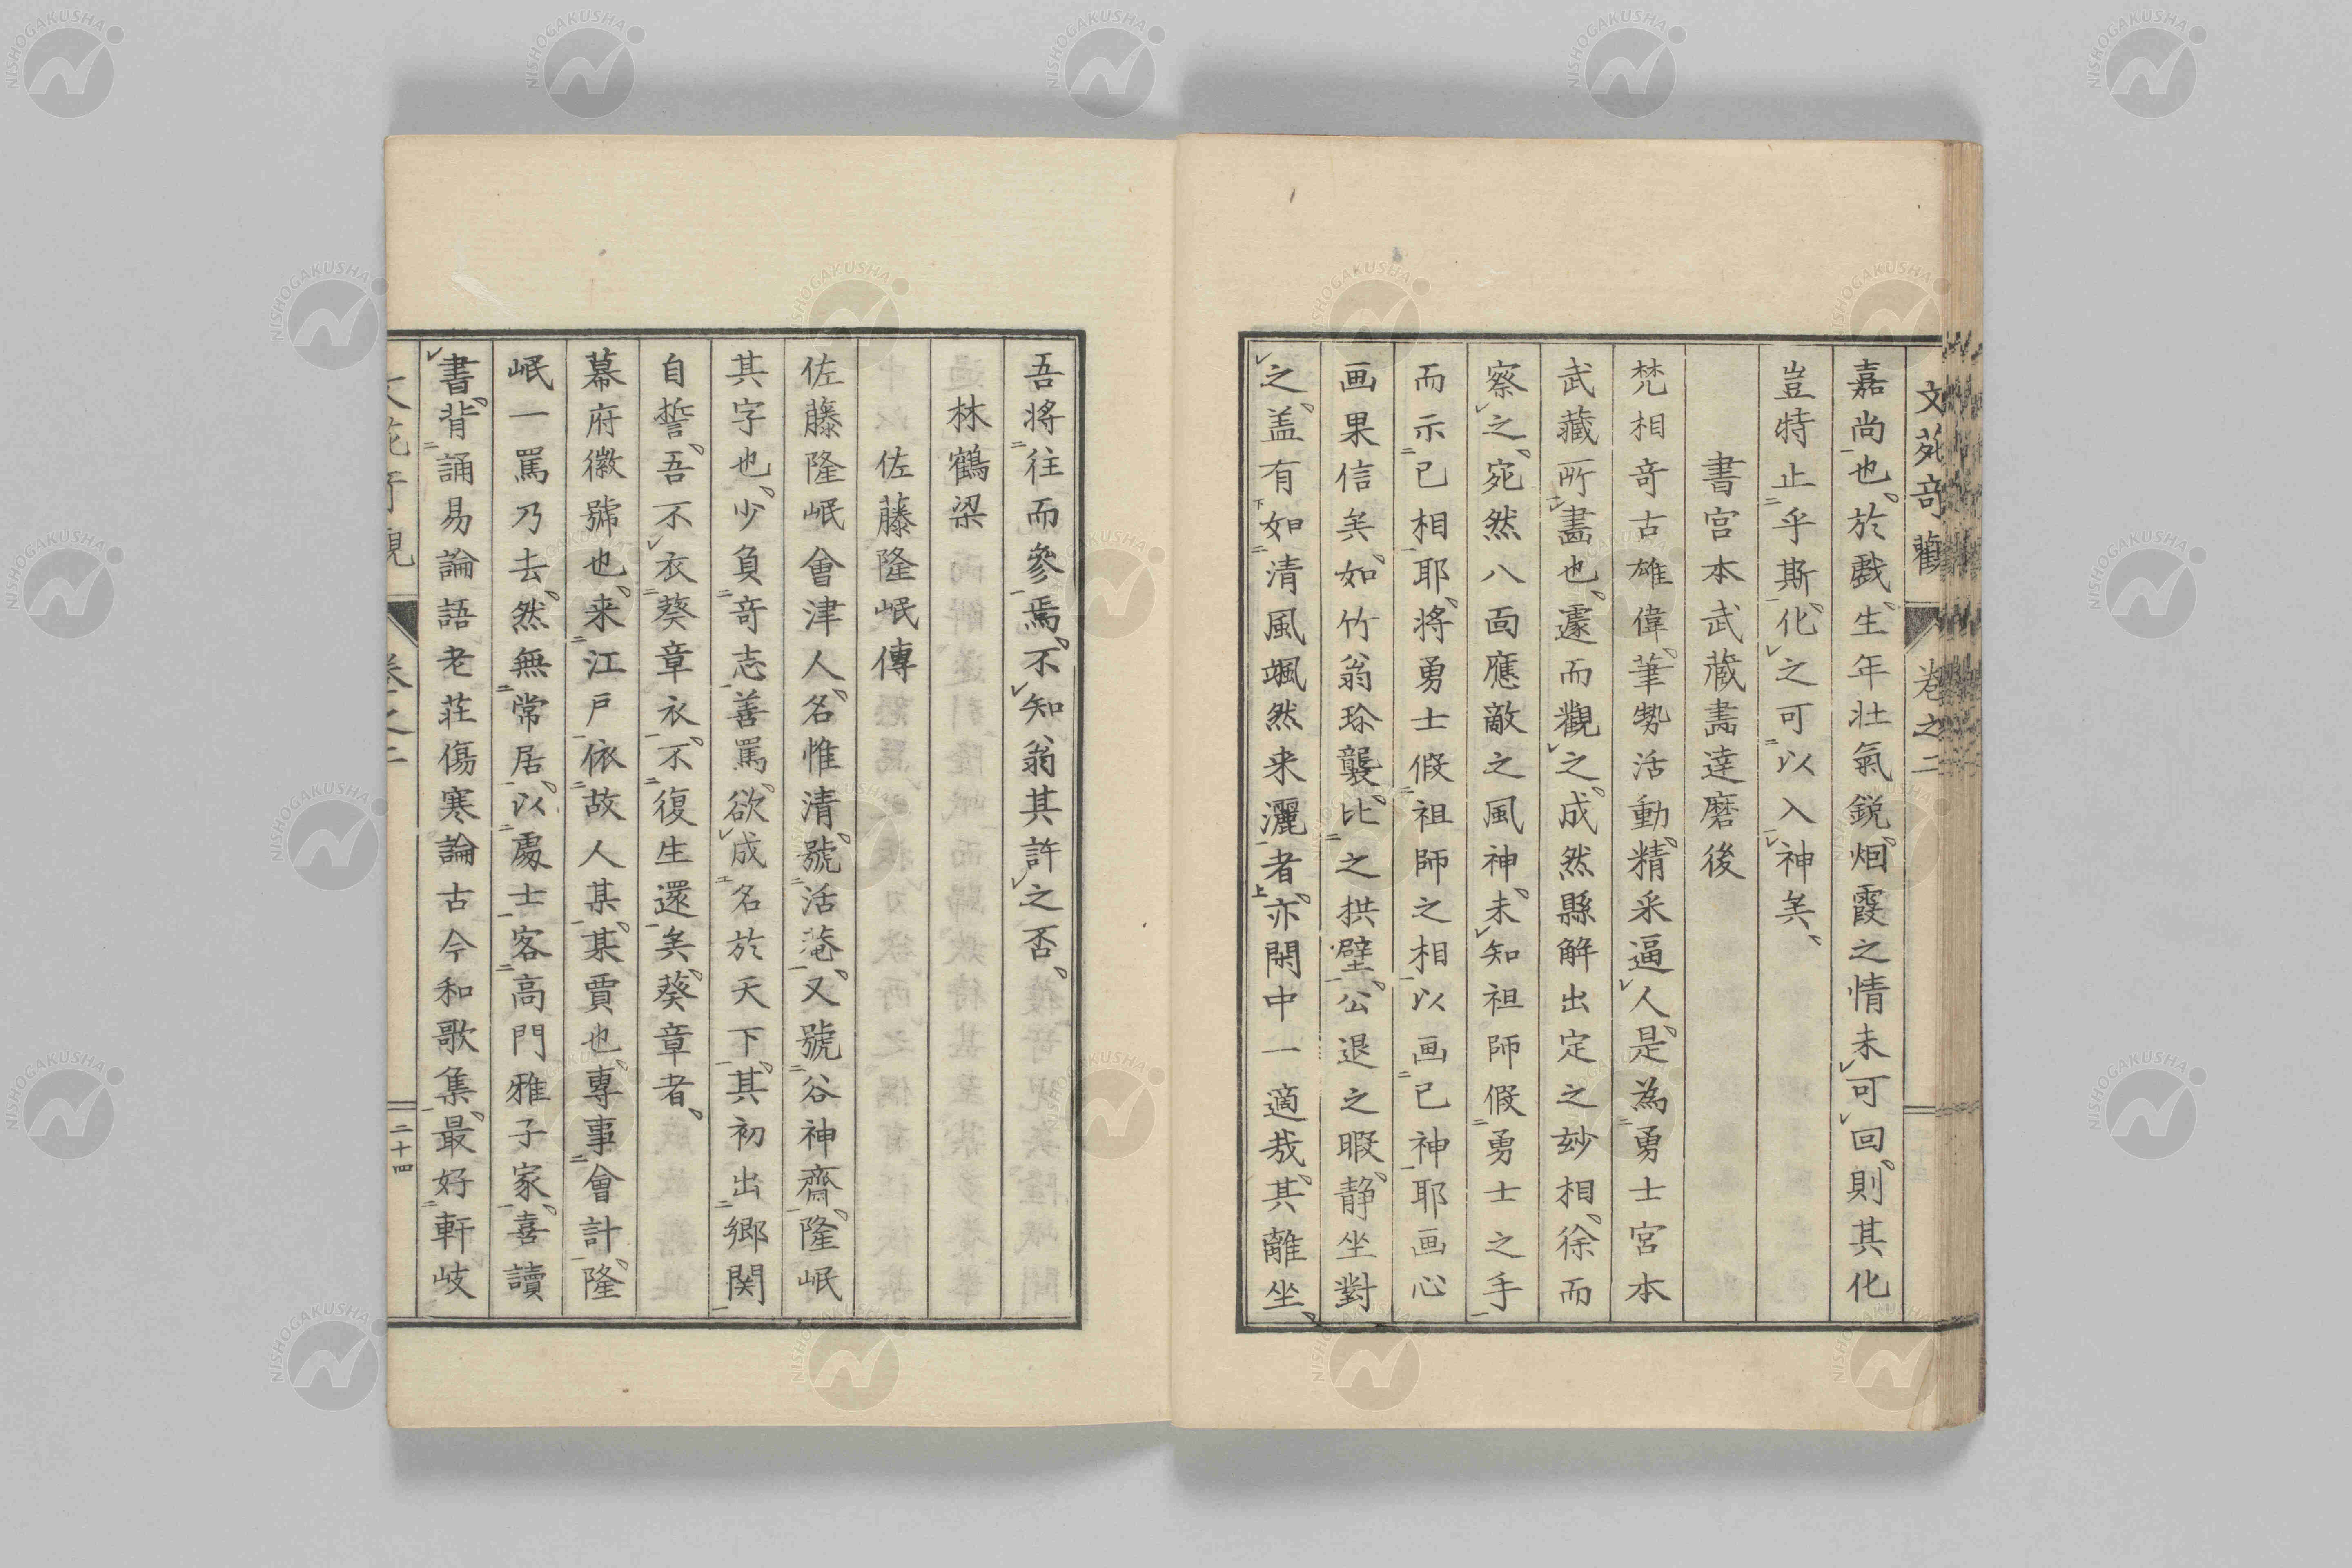 文苑奇觀 卷之二
嘉尚也於戲生年壮氣鋭烟霞之情未可回則其化
豈特止乎斯化之可以入神矣
書宮本武蔵畵達磨後
梵相奇古雄偉筆勢活動精采逼人是為勇士宮本
武藏所畵也遽而觀之成然縣解出定之玅相徐而
察之宛然八面應敵之風神未知祖師假勇士之手
而示已相耶将勇士假祖師之相以画已神耶画心
画果信矣如竹翁珎襲比之拱璧公退之暇静坐對
之盖有如清風颯然来灑者亦閑中一適哉其離坐
吾将往而參焉不知翁其許之否
林鶴梁
佐藤隆岷傳
佐藤隆岷會津人名惟清號活菴又號谷神齋隆岷
其字也少負奇志善罵欲成名於天下其初出鄉関
自誓吾不衣葵章衣不復生還矣葵章者
幕府徽號也来江戸依故人某某賈也專事會計隆
岷一罵乃去然無常居以處士客高門雅子家喜讀
書背誦易論語老莊傷寒論古今和歌集最好軒岐
文苑奇觀 卷之二 二十四
NISHOGAKUSHA